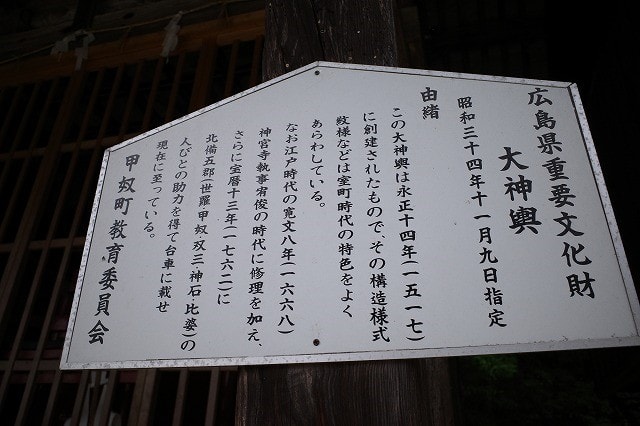 広島県重要文化財
大神輿
昭和三十四年十一月九日指定
由緒
この大神輿は永正十四年(一五一七)
に創建されたもので、その構造様式
紋様などは室町時代の特色をよく
あらわしている。
なお江戸時代の寛文八年(一六六八)
神宮寺執事宥俊の時代に修理を加え、
さらに宝暦十三年(一七六二)に
北備五郡(世羅・甲奴・双三・神石・比婆)の
人びとの助力を得て台車に載せ
現在に至っている。
甲奴町教育委員会